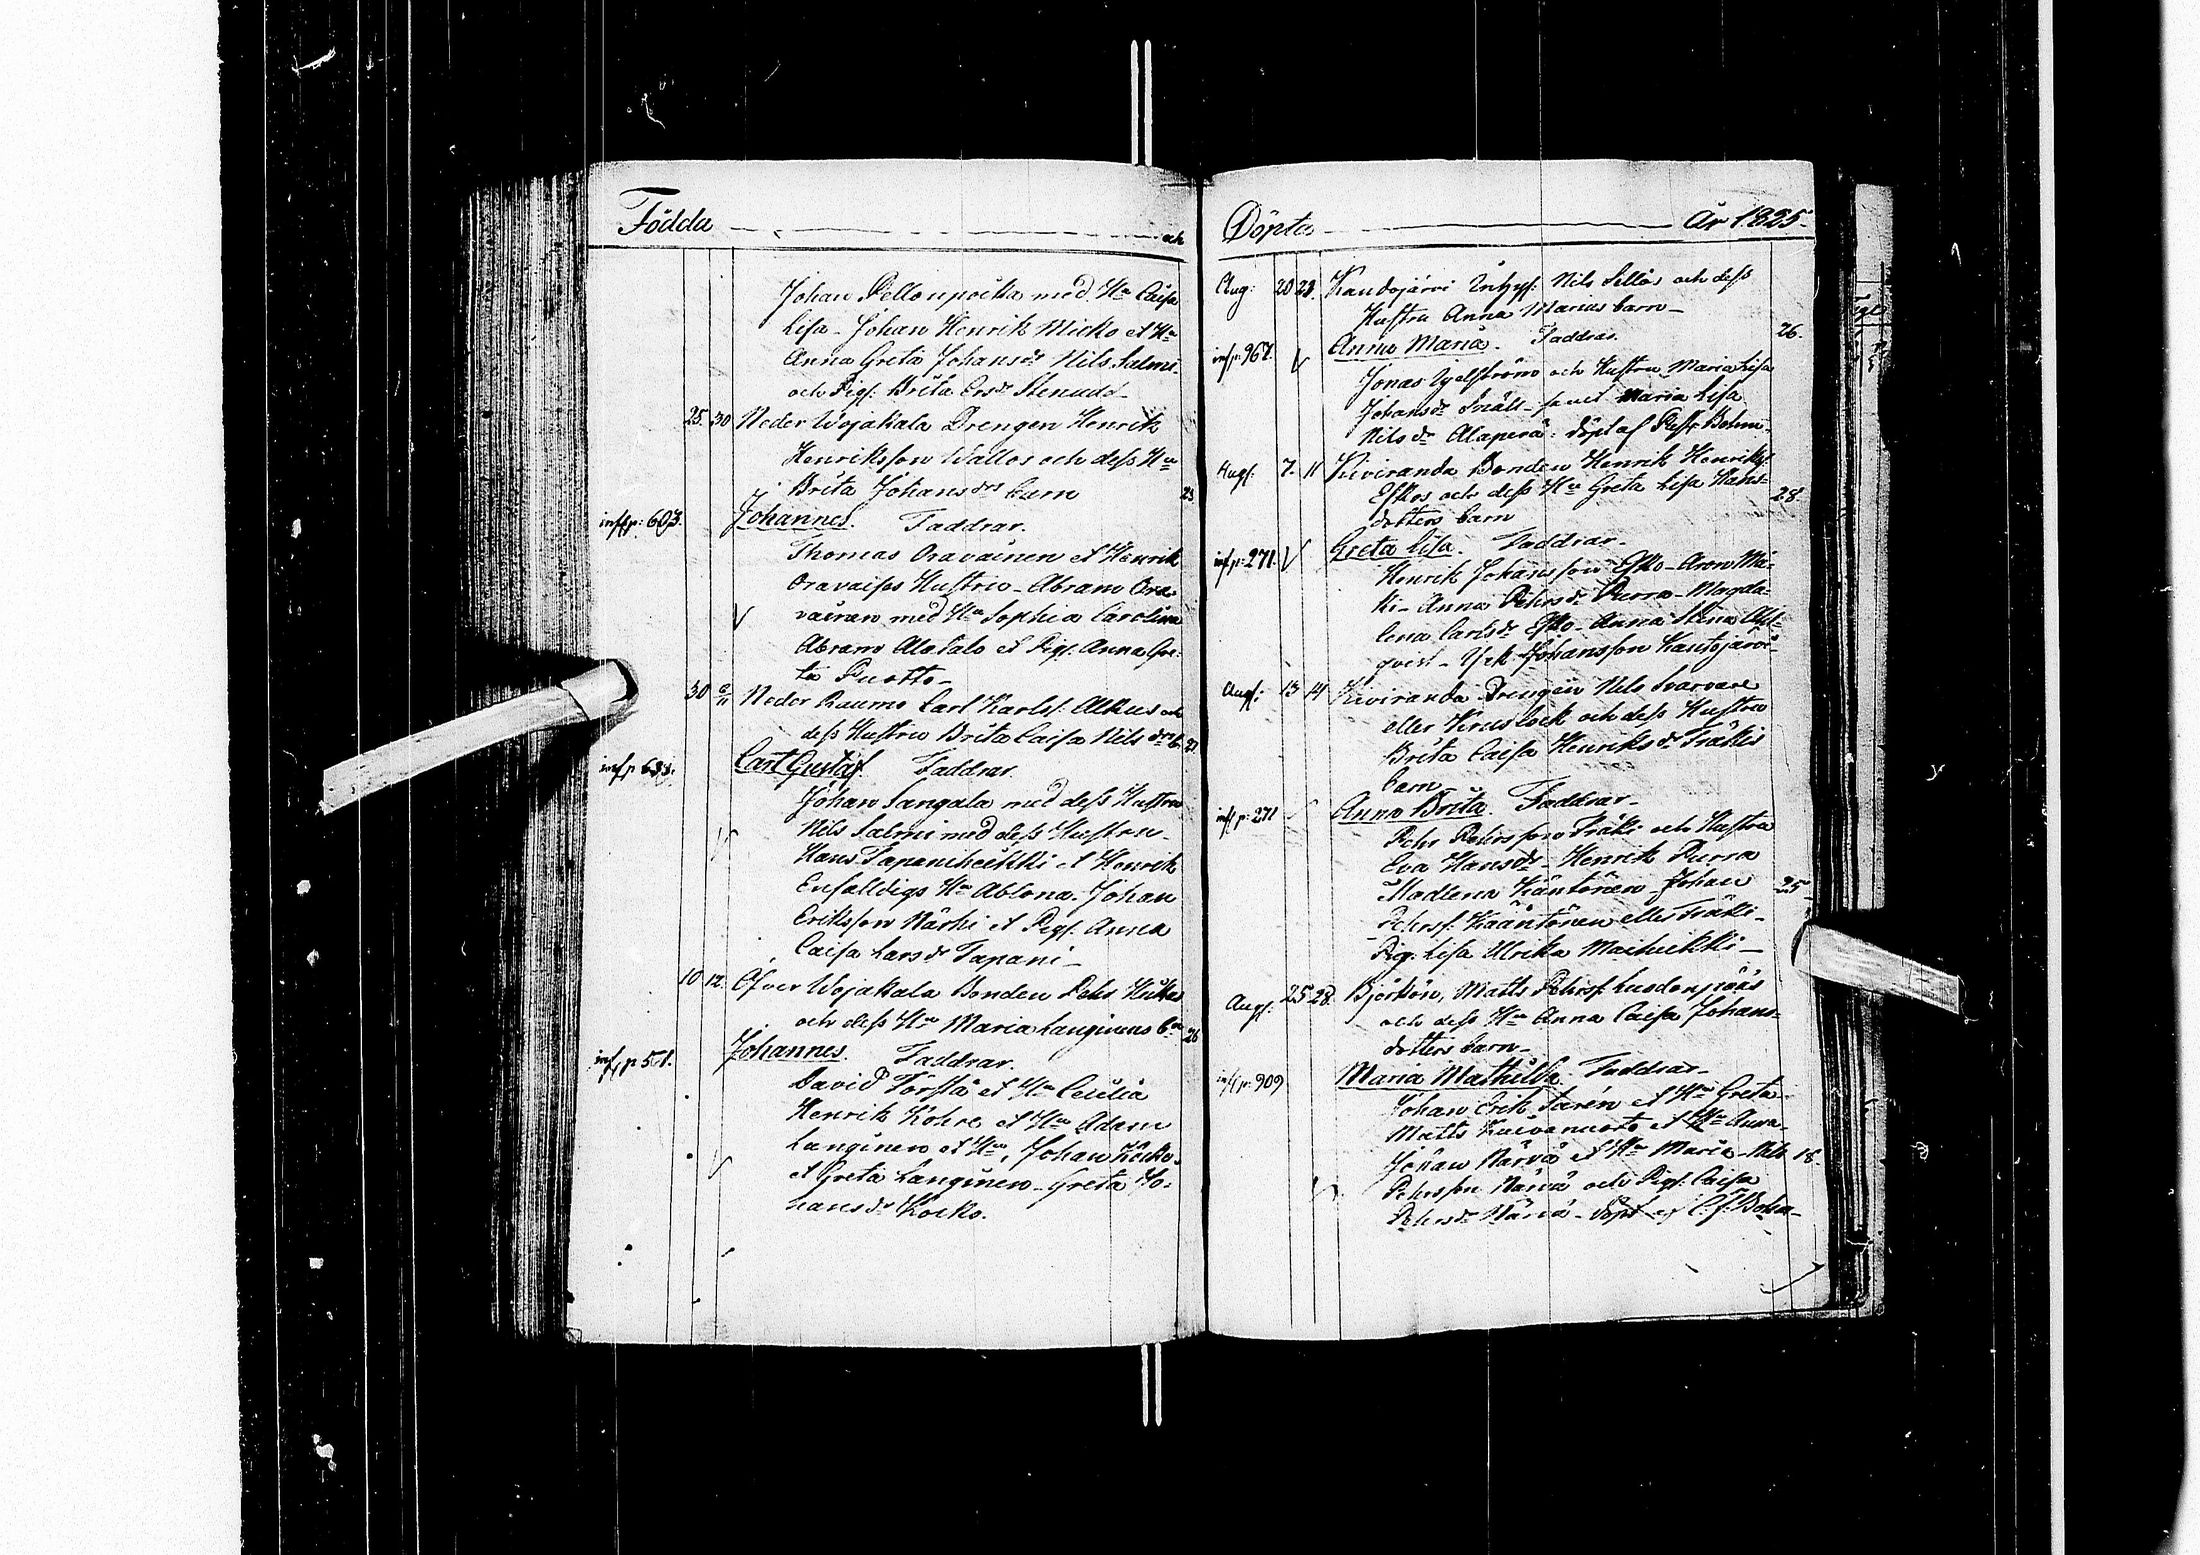 Födda och
Johan Pellonpoika med Hu Caisa
Lisa - Johan Henrik Micko et Hu
Anna Greta Johansdr Nils Salmi
och Pig. Brita Ersdr Stenudd
25. 30 Neder Wojakala Drengen Henrik
Henriksson Wallos och dess Hu
Brita Johansdrs barn 23.
inf. p: 603. Johannes. Faddrar.
Thomas Oravainen et Henrik
Oravaises Hustru - Abram Ora-
vainen med Hu Sophia Carolina
Abram Alatalo et Pig. Anna Gre-
ta Puotto -
30 Neder Raumo Carl Karlss. Alkus och
dess Hustru Brita Caisa Nilsdrs b.
inf. p Carl Gustaf. Faddrar.
Johan Sangala med dess Hustru
Nils Salmi med dess Hustru -
Hans Tapaniheikki et Henrik
Enfalldigs Hu Ablona. Johan
Eriksson Närhi et Pig. Anna
Caisa Larsdr Tapani -
10 12. Öfver Wojakala Bonden Pehr
och dess Hu Maria Langinens bn 26
inf. p Johannes. Faddrar.
David Törfts et Hu Cecilia
Henrik Kohre et Hu Adam
Langinen et Hu, Johan Kocko
et Greta Langinen - Greta Jo-
hansdr Kocko.
Döpta År 1825.
Aug: 20 28. Kandojärvi Inhys: Nils Sellös och dess
Hustru Anna Marias barn - 26.
inf. p: 967. Anna Maria. Faddrar.
Jonas och Hustru Maria Lisa
Johansdr Snäll - samt Maria Lisa
Nilsdr Alaperä. döpt af Past. Bohm-
Aug: 7. 11 Kiviranda Bonden Henrik Henriks.
Eskos och dess Hu Greta Lisa Hans-
dotters barn 28.
inf. p: 271. Greta Lisa. Faddrar -
Henrik Johansson Esko - Aron Mä-
ki - Anna Pehrsdr Purra - Magda-
lena Carlsdr Esko - Anna Stina
qvist - Johansson Kantojärvi -
Aug: 13 14 Kiviranda Drengen Nils Svarvare
eller och dess Hustru
Brita Caisa Henriksdr Fräkis
barn
inf. p: 271 Anna Brita. Faddrar -
Pehr Pehrsson Fräki och Hustru
Eva Hansdr - Henrik Purra
Madlena Kääntönen - Johan 25
Pehrss. Kääntönen eller Fräki -
Pig: Lisa Ulrika Maiheikki -
Aug: 25 28. Björkön, Matts Pehrs.
och dess Hu Anna Caisa Johans-
dotters barn -
inf. p: 909 Maria Mathilda. Faddrar -
Johan Erik et Hu Greta -
Matts et Hu Anna -
Johan Närvä et Hu Maria - Nils 18.
Pehrsson Närvä och Pig. Caisa
Pehrsdr Närvä - döpt af C. J. Bohm -